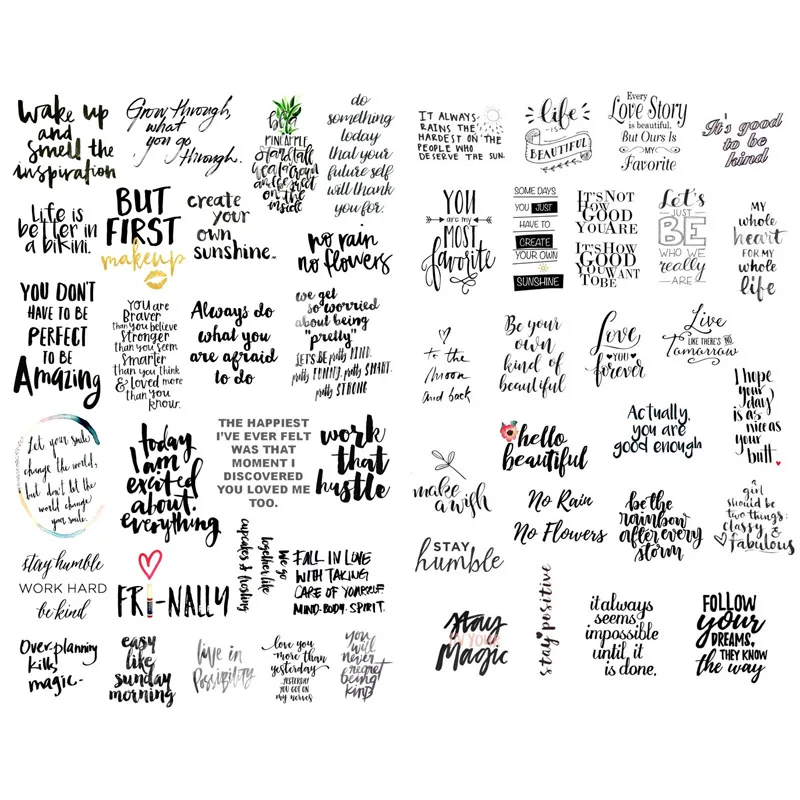 wake up
and
smell the
inspiration
Grow through,
what
you go
through.
be a
PINEAPPLE
stand tall
wear a crown
and be sweet
on the
inside
do
something
today
that your
future self
will thank
you for.
Life is
better in
a bikini.
BUT
FIRST
makeup
create
your
own
sunshine.
no rain
no flowers
YOU DON'T
HAVE TO BE
PERFECT
TO BE
Amazing
YOU are
Braver
than you believe
Stronger
than you seem
Smarter
than you think
& Loved more
than you
know.
Always do
what you
are afraid
to do
we get
so worried
about being
"pretty"
LET'S BE pretty KIND.
pretty FUNNY. pretty SMART.
pretty STRONG
Let your smile
change the world,
but don't let the
world change
your smile.
today
I am
excited
about
everything
THE HAPPIEST
I'VE EVER FELT
WAS THAT
MOMENT I
DISCOVERED
YOU LOVED ME
TOO.
work
that
hustle
stay humble
WORK HARD
be kind
FRI-NALLY
we go
together like
cupcakes & frosting
FALL IN LOVE
WITH TAKING
CARE OF YOURSELF
MIND. BODY. SPIRIT.
Over-planning
kills
magic-
easy
like
sunday
morning
live in
Possibility
love you
more than
yesterday
YESTERDAY
YOU GOT ON
my nerves
you
will
never
regret
being
kind
IT ALWAYS
RAINS THE
HARDEST ON THE
PEOPLE WHO
DESERVE THE SUN.
life
IS
BEAUTIFUL
Every
Love Story
is beautiful,
But Ours Is
MY
Favorite
It's good
to be
kind
YOU
are my
MOST
favorite
SOME DAYS
YOU JUST
HAVE TO
CREATE
YOUR OWN
SUNSHINE
IT'S NOT
HOW
GOOD
YOU ARE
IT'S HOW
GOOD
YOU WANT
TO BE
Let's
JUST
BE
WHO WE
really
ARE
MY
whole
heart
FOR MY
whole
life
to the
moon
and back
Be your
own
kind of
beautiful
Love
YOU
forever
Live
LIKE THERE'S NO
Tomorrow
I hope
your
day
is as
nice as
your
butt
make
a wish
hello
beautiful
Actually,
you are
good enough
No Rain
No Flowers
be the
rainbow
after every
storm
a
girl
should be
two things:
classy &
fabulous
STAY
humble
Stay
IN YOUR
Magic
stay positive
it always
seems
impossible
until it
is done.
FOLLOW
your
DREAMS,
THEY KNOW
the way